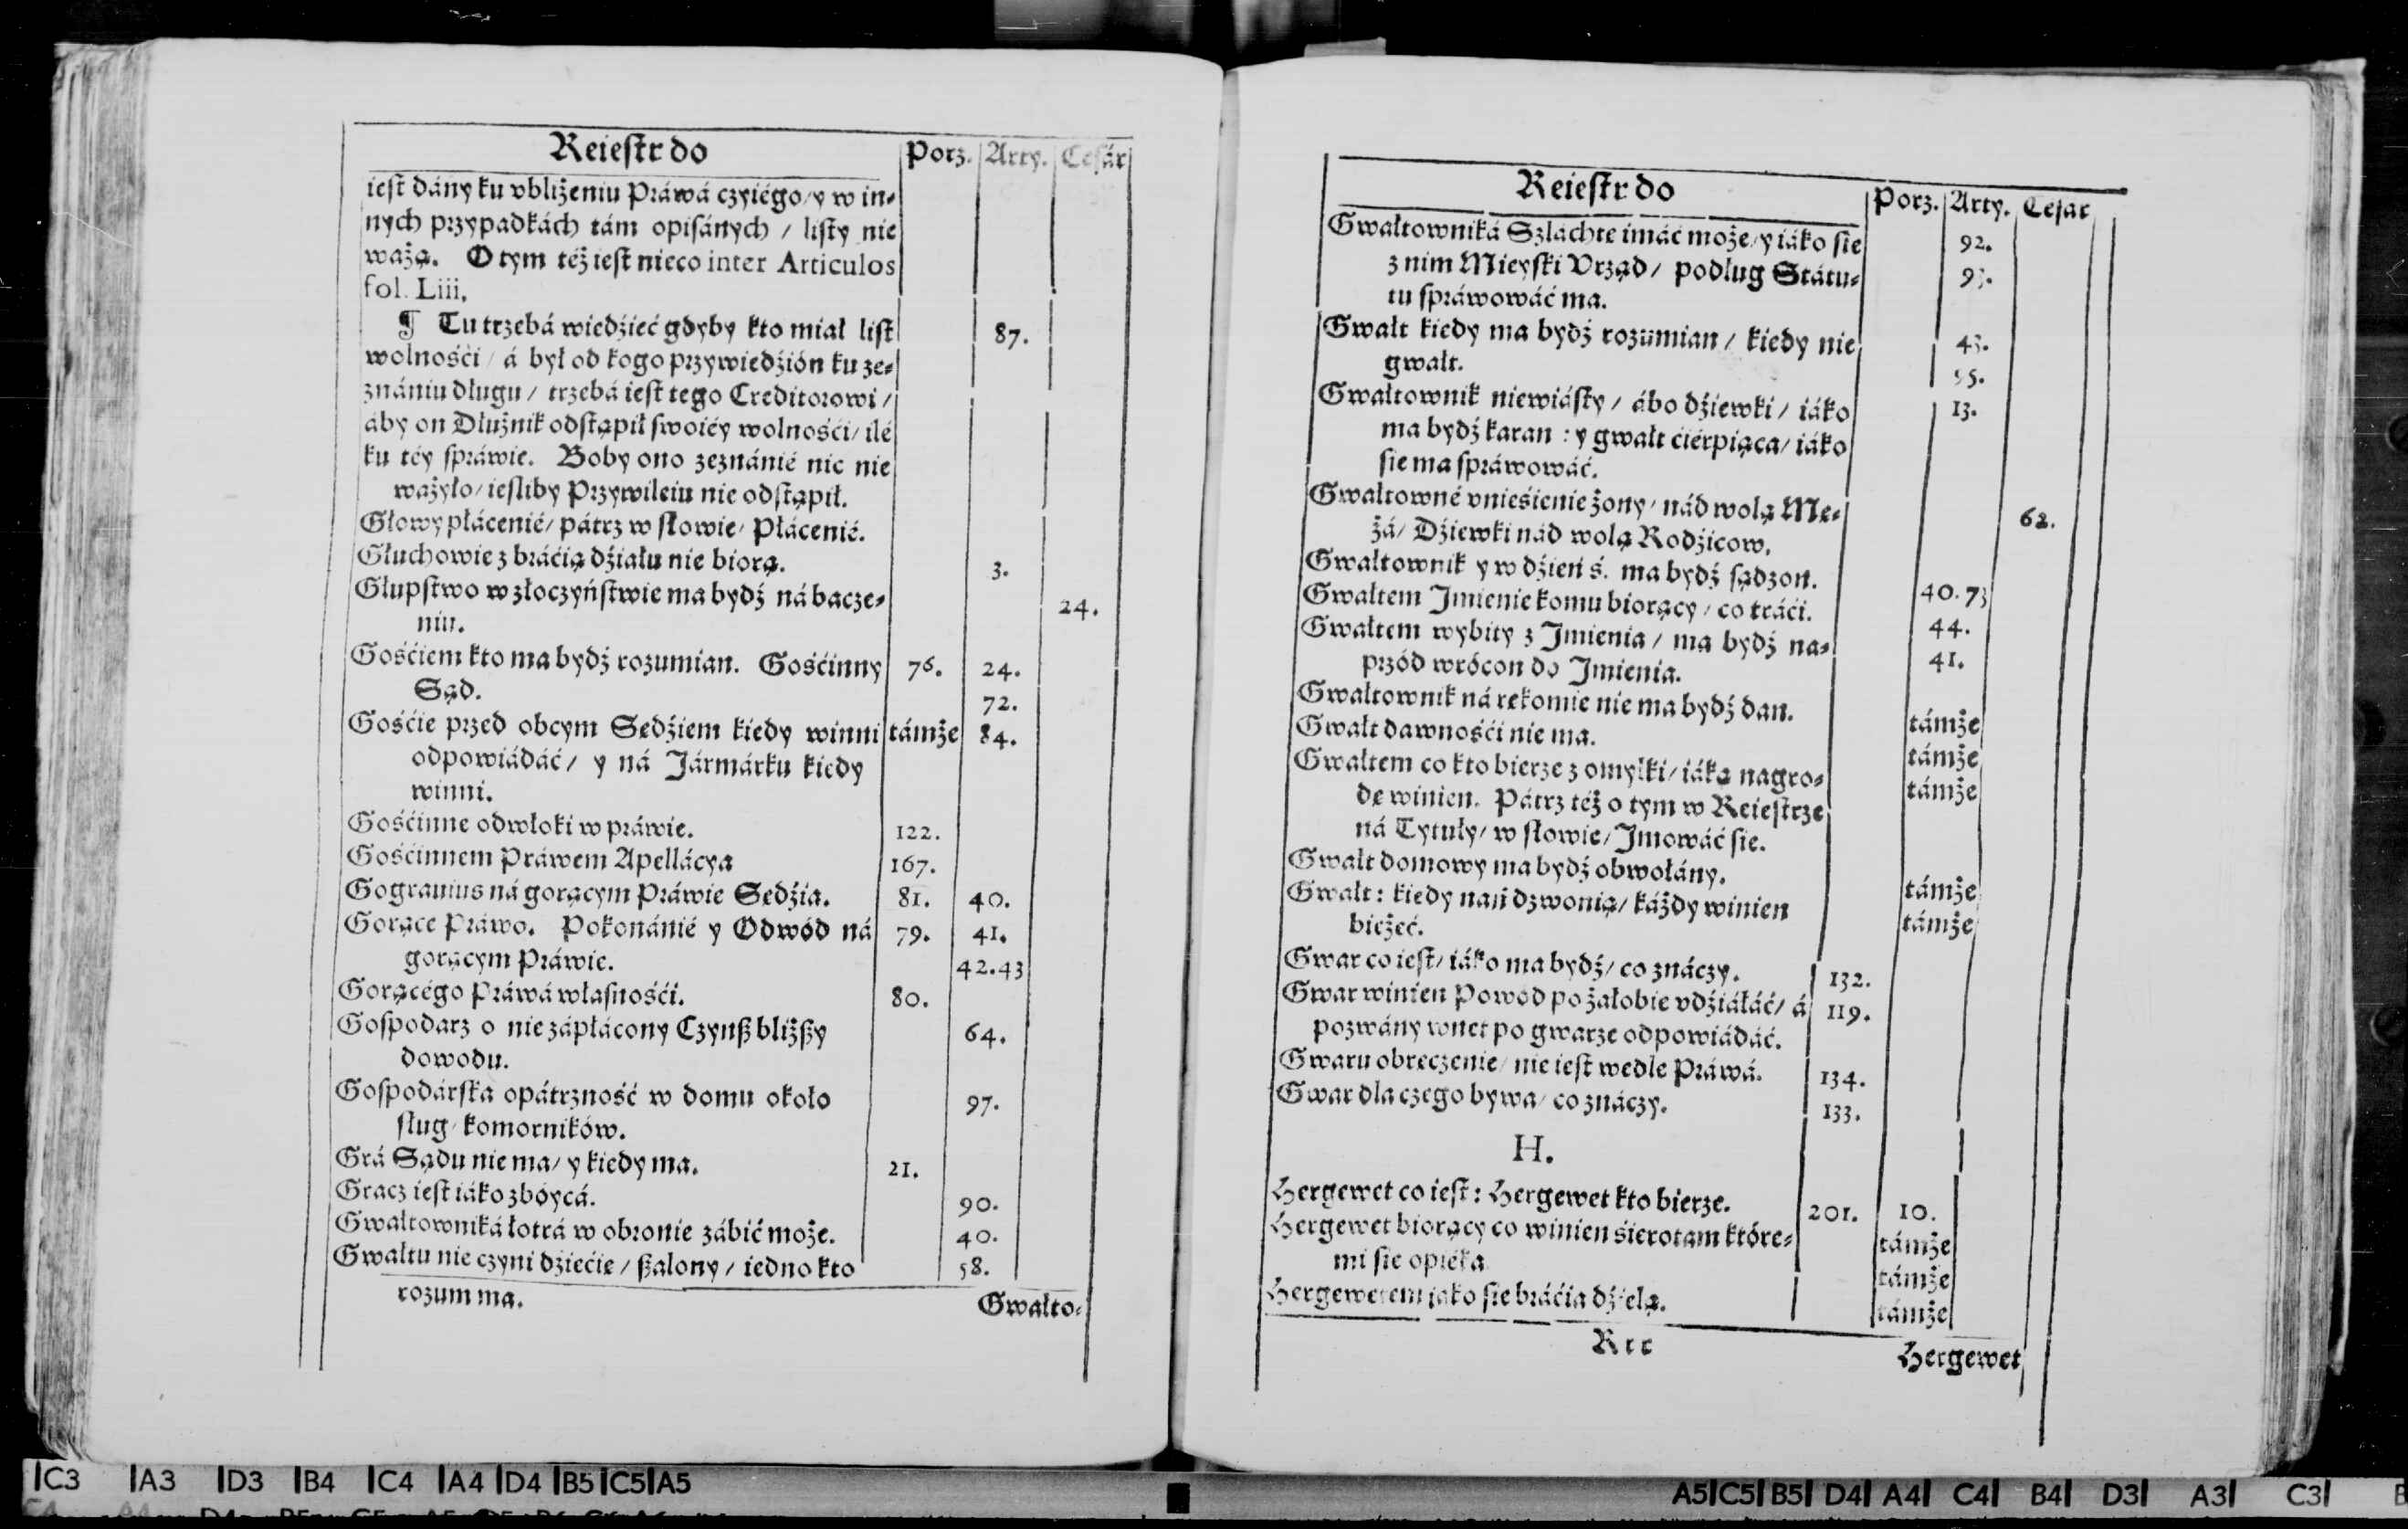 Reiestr do Porz. Arty. Cesár
iest dány ku vbliżeniu Práwá czyiégo / y w in-
nych przypadkách tám opisánych / listy nie
ważą. O tym téż iest nieco inter Articulos
fol. Liii.
¶ Tu trzebá wiedźieć gdyby kto miał list 87.
wolnośći / á był od kogo przywiedźión ku ze-
znániu długu / trzebá iest tego Creditorowi /
áby on Dłużnik odstąpił swoiéy wolnośći / ilé
ku téy spráwie. Boby ono zeznánié nic nie
ważyło / iesliby Przywileiu nie odstąpił.
Głowy płácenié / pátrz w słowie / Płácenié.
Głuchowie z bráćią dźiału nie biorą. 3.
Głupstwo w złoczyństwie ma bydź ná bacze- 24.
niu.
Gośćiem kto ma bydź rozumian. Gośćinny 76. 24.
Sąd. 72.
Gośćie przed obcym Sędźiem kiedy winni támże 84.
odpowiádáć / y ná Jármárku kiedy
winni.
Gośćinne odwłoki w práwie. 122.
Gośćinnem Práwem Apellácya 167.
Gograuius ná gorącym Práwie Sędźia. 81. 40.
Gorące Práwo. Pokonánié y Odwód ná 79. 41.
gorącym Práwie. 42.43
Gorącégo Práwá własnośći. 80.
Gospodarz o nie zápłácony Czynß bliżßy 64.
dowodu.
Gospodárska opátrzność w domu około 97.
sług / komorników.
Grá Sądu nie ma / y kiedy ma. 21.
Gracz iest iáko zbóycá. 90.
Gwałtowniká łotrá w obronie zábić może. 40.
Gwałtu nie czyni dźiećię / ßalony / iedno kto 58.
rozum ma. Gwałto-
Reiestr do Porz. Arty. Cesar
Gwałtowniká Szlachte imáć może / y iáko sie 92.
z nim Mieyski Vrząd / podług Státu- 93.
tu spráwowáć ma.
Gwałt kiedy ma bydź rozumian / kiedy nie 43.
gwałt. 55.
Gwałtownik niewiásty / ábo dźiewki / iáko 13.
ma bydź karan : y gwałt ćiérpiąca / iáko
sie ma spráwowáć.
Gwałtowné vnieśienie żony / nád wolą Mę- 62.
żá / Dźiewki nád wolą Rodźicow.
Gwałtownik y w dźień ś. ma bydź sądzon. 40.73
Gwałtem Jmienie komu biorący / co tráći. 44.
Gwałtem wybity z Jmienia / ma bydź na- 41.
przód wrócon do Jmienia.
Gwałtownik ná rękomie nie ma bydź dan. támże
Gwałt dawnośći nie ma. támże
Gwałtem co kto bierze z omyłki / iáką nagro- támże
dę winien. Pátrz téż o tym w Reiestrze
ná Tytuły / w słowie / Jmowáć sie.
Gwałt domowy ma bydź obwołány. támże
Gwałt : kiedy nań dzwonią / káżdy winien támże
bieżeć.
Gwar co iest / iáko ma bydź / co znáczy. 132.
Gwar winien Powód po żałobie vdźiáłáć / á 119.
pozwány wnet po gwarze odpowiádáć.
Gwaru obręczenie / nie iest wedle Práwá. 134.
Gwar dla czego bywa / co znáczy. 133.
H.
Hergewet co iest : Hergewet kto bierze. 201. 10.
Hergewet biorący co winien śierotam któré- támże
mi sie opiéka támże
Hergewetem jako sie bráćia dźielą. támże
Rrr Hergewet
C3 A3 D3 B4 C4 A4 D4 B5 C5 A5
A5 C5 B5 D4 A4 C4 B4 D3 A3 C3